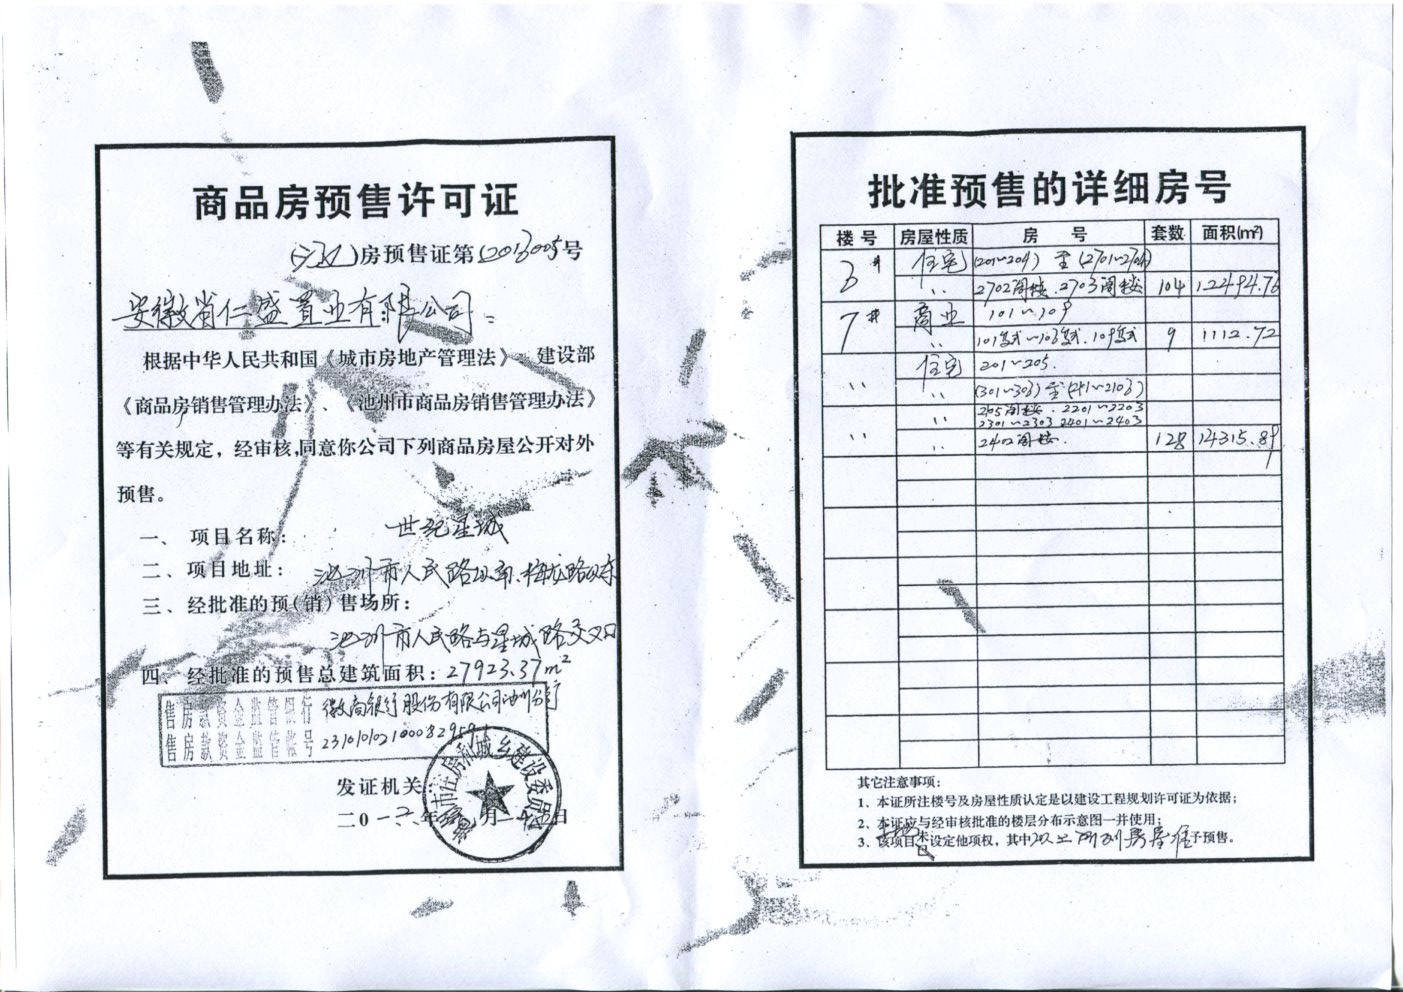 商品房预售许可证
房预售证第(2013005号
安徽省仁盛置业有限公司:
根据中华人民共和国《城市房地产管理法》、建设部
《商品房销售管理办法》、《池州市商品房销售管理办法》
等有关规定，经审核,同意你公司下列商品房屋公开对外
预售。
一、项目名称: 世纪星城
二、项目地址: 池州市人民路以南、梅龙路以东
三、经批准的预(销)售场所:
池州市人民路与星城路交叉口
四、经批准的预售总建筑面积: 27923.37m²
售房款资金监管银行 徽商银行股份有限公司池州分行
售房款资金监管帐号
发证机关:
二0一三年
市住房和城乡建设委员会
批准预售的详细房号
楼号 房屋性质 房号 套数 面积(m²)
3# 住宅 (201~204) 至 (2701~2704)
〃 2702阁楼、2703阁楼 104 12494.76
7# 商业 101~109
〃 9 1112.72
住宅 201~205、
〃 〃
〃 205阁楼、2201~2203
2301~2303 2401~2403
〃 〃 2402阁楼、 128 14315.89
其它注意事项:
1、本证所注楼号及房屋性质认定是以建设工程规划许可证为依据;
2、本证应与经审核批准的楼层分布示意图一并使用;
3、该项目未已设定他项权，其中以上所列房屋准予预售。